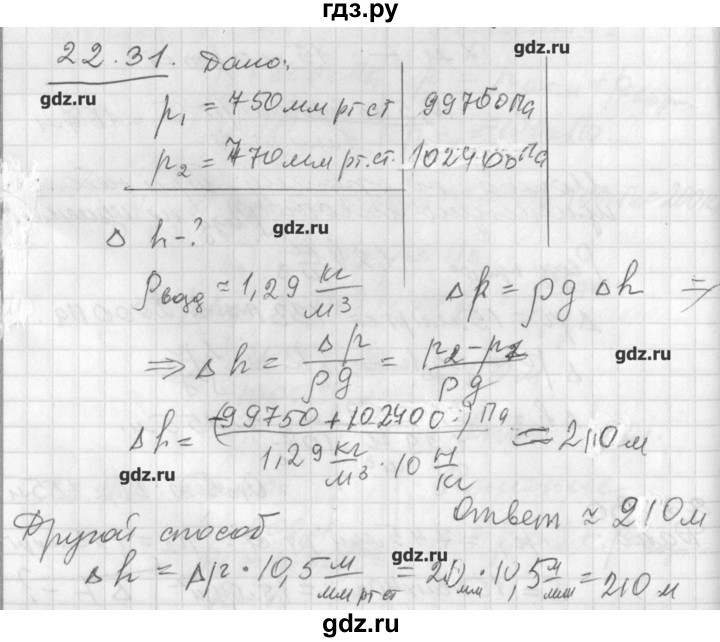 гдз.ру
22.31. Дано:
gdz.ru
p₁ = 750 мм рт ст | 99750 Па
p₂ = 770 мм рт. ст. | 102400 Па
gdz.ru
gdz.ru
Δ h - ?
ρ возд ≈ 1,29 кг/м³ Δp = ρ g Δh ⇒
gdz.ru
⇒ Δh = Δp/ρg = (p₂ - p₁)/ρg
Δh = (-99750 + 102400) Па / (1,29 кг/м³ · 10 Н/кг) = 210 м
gdz.ru
Ответ ≈ 210 м
Другой способ
gdz.ru
Δh = Δp · 10,5 м/мм рт ст = 20 мм · 10,5 м/мм = 210 м
gdz.ru